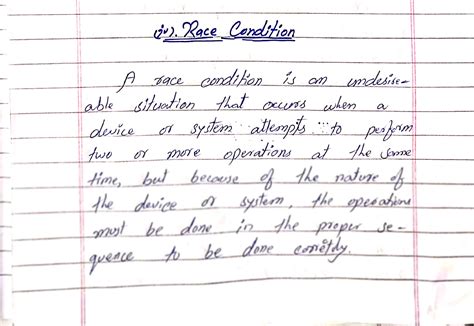 iv). Race Condition
A race condition is an undesire-
able situation that occurs when a
device or system attempts to perform
two or more operations at the same
time, but because of the nature of
the device or system, the operations
must be done in the proper se-
quence to be done correctly.